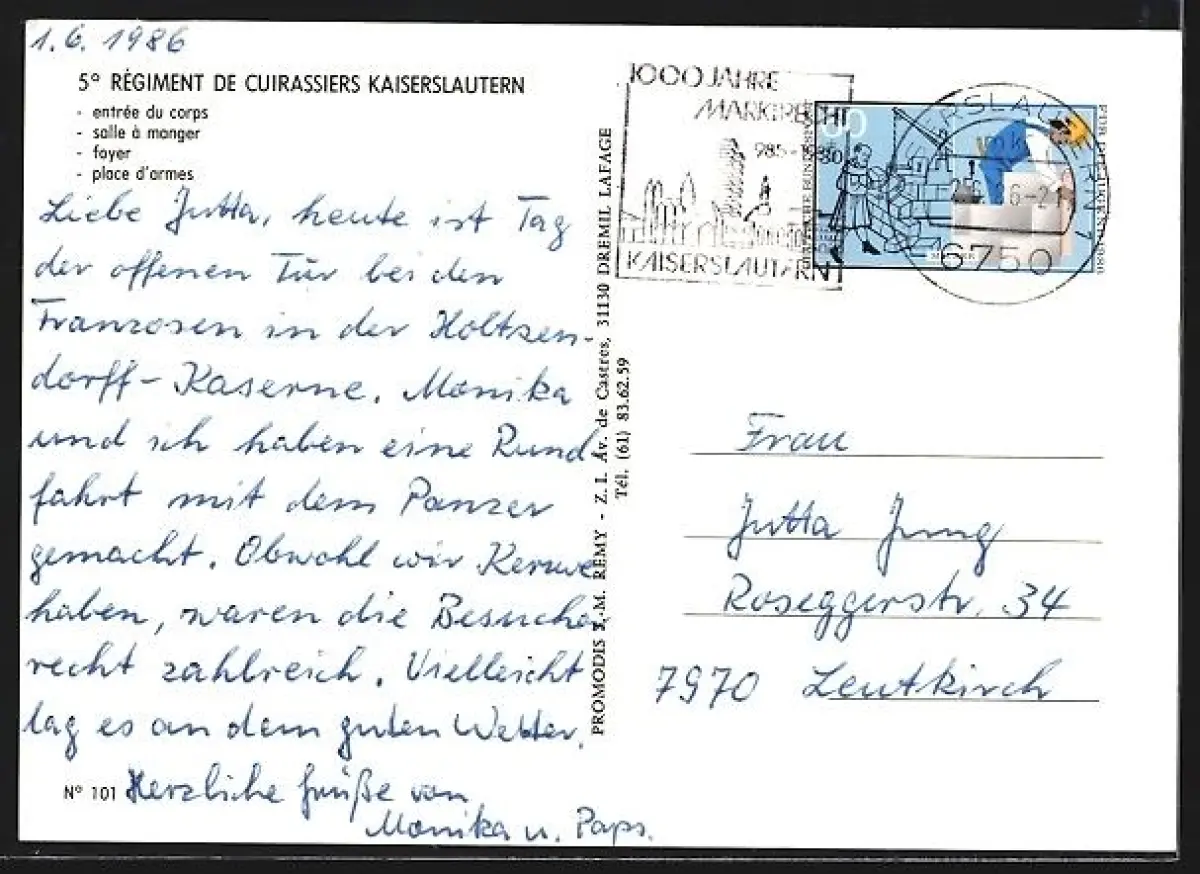 1.6.1986
5° RÉGIMENT DE CUIRASSIERS KAISERSLAUTERN
- entrée du corps
- salle à manger
- foyer
- place d'armes
Liebe Jutta, heute ist Tag
der offenen Tür bei den
Franzosen in der Holtzen-
dorff-Kaserne. Monika
und ich haben eine Rund-
fahrt mit dem Panzer
gemacht. Obwohl wir Kerwe
haben, waren die Besucher
recht zahlreich. Vielleicht
lag es an dem guten Wetter.
Herzliche Grüße von
Monika u. Paps.
N° 101
PROMODIS J.-M. REMY - Z. I. Av. de Castres, 31130 DREMIL LAFAGE
Tél. (61) 83.62.59
1000 JAHRE
MARKTRECHT
985-1985
KAISERSLAUTERN
80
6750
Frau
Jutta Jung
Roseggerstr. 34
7970 Leutkirch